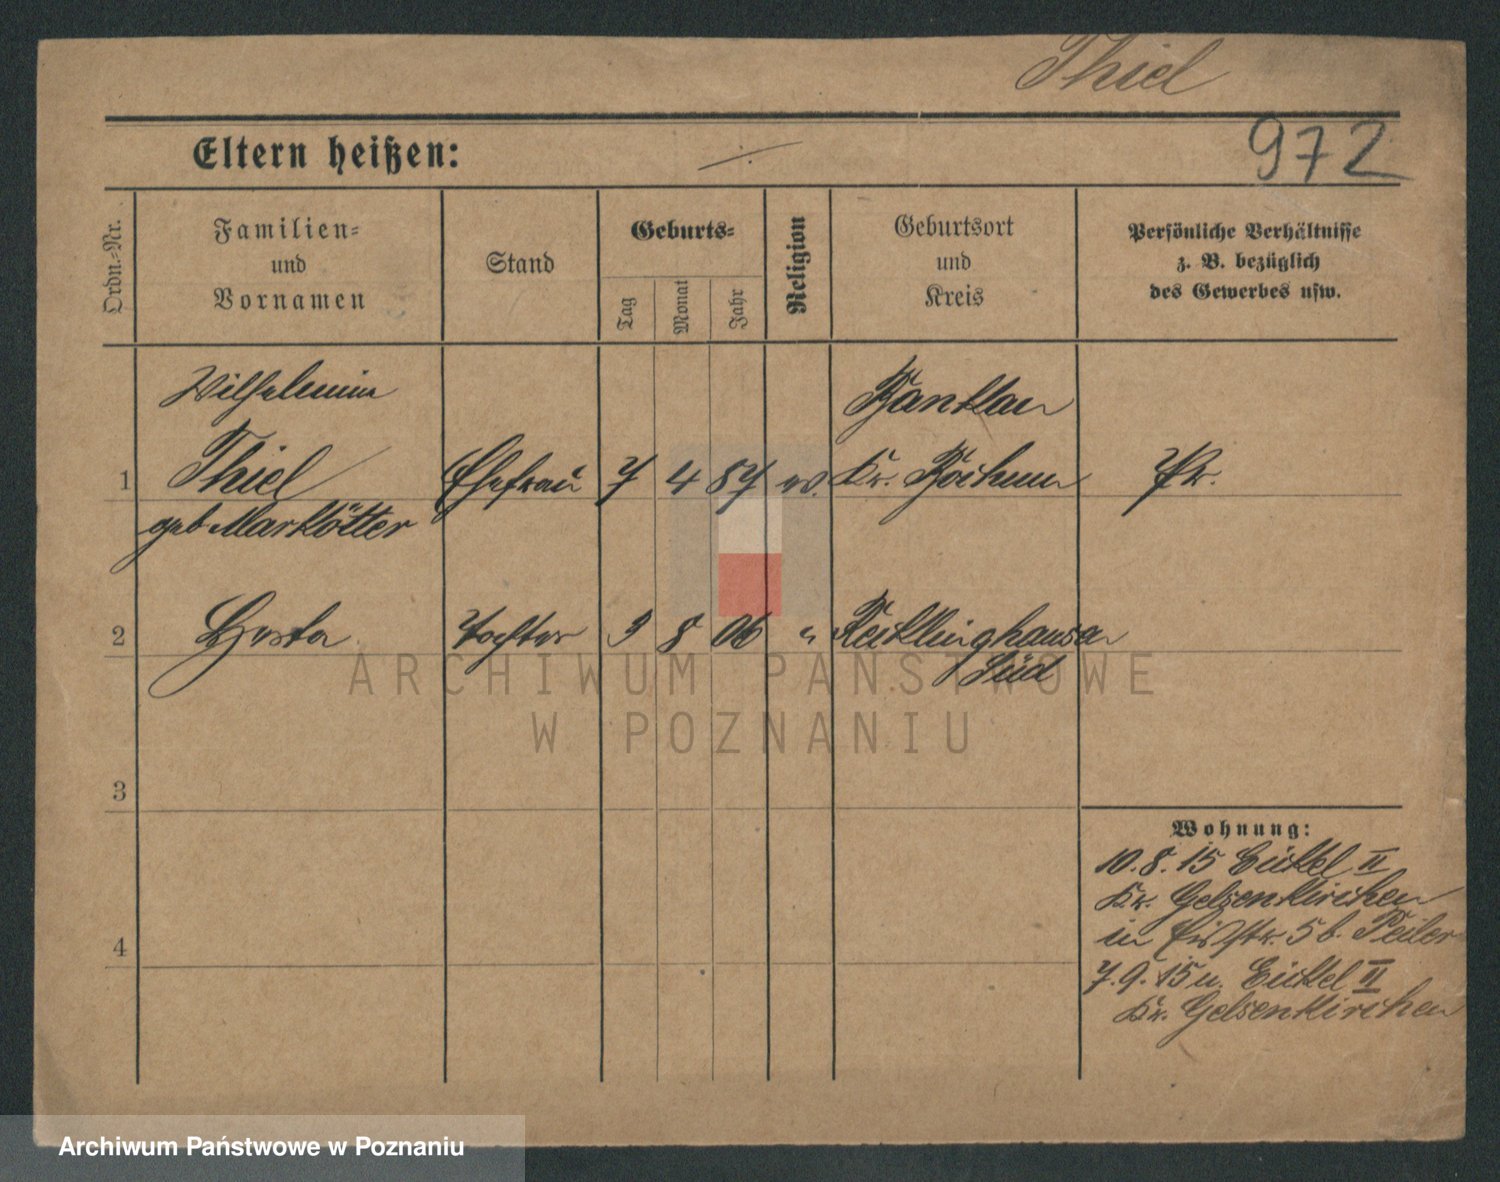 Thiel
972
Eltern heißen: ./.
Ordn.-Nr.
Familien-
und
Vornamen
Stand
Geburts-
Tag
Monat
Jahr
Religion
Geburtsort
und
Kreis
Persönliche Verhältnisse
z. B. bezüglich
des Gewerbes usw.
Wilhelmine
1 Thiel Ehefrau 7 4 87 ev. Kr. Bochum Pr.
geb Markkötter
2 Herta Tochter 3 8 06 " Recklinghausen
Süd
3
4
Wohnung:
10.8.15 Eickel II
Kr. Gelsenkirchen
in 5 b. Peiler
7.9.15 u. Eickel II
Kr. Gelsenkirchen
ARCHIWUM PAŃSTWOWE
W POZNANIU
Archiwum Państwowe w Poznaniu